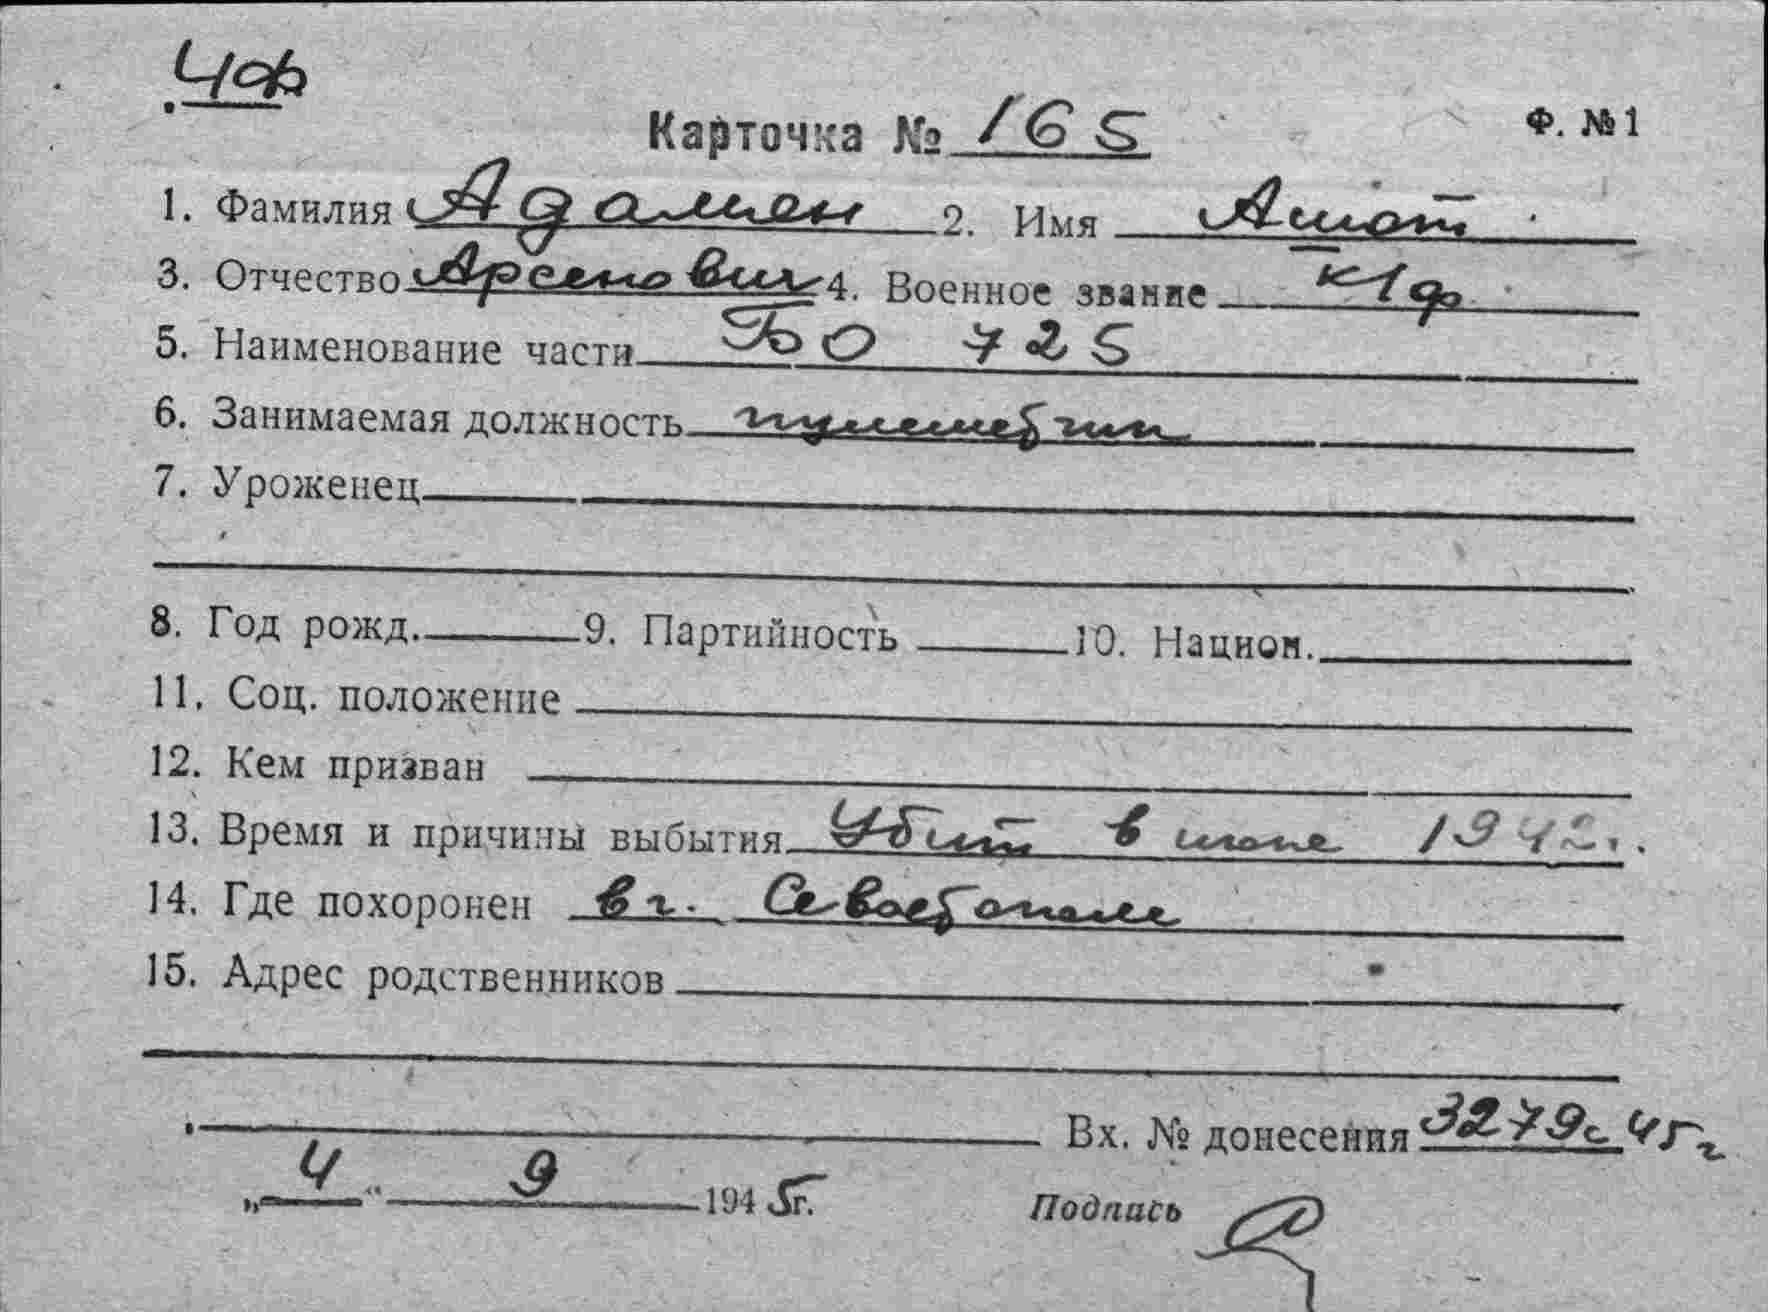 ЧФ
Карточка № 165 Ф. №1
1. Фамилия Адамен 2. Имя Ашот
3. Отчество Арсенович 4. Военное звание к/ф
5. Наименование части БО 725
6. Занимаемая должность пулеметчик
7. Уроженец
8. Год рожд. 9. Партийность 10. Национ.
11. Соц. положение
12. Кем призван
13. Время и причины выбытия Убит в июне 1942г.
14. Где похоронен в г. Севастополе
15. Адрес родственников
Вх. № донесения 3279с 45г
„4“ 9 1945г. Подпись